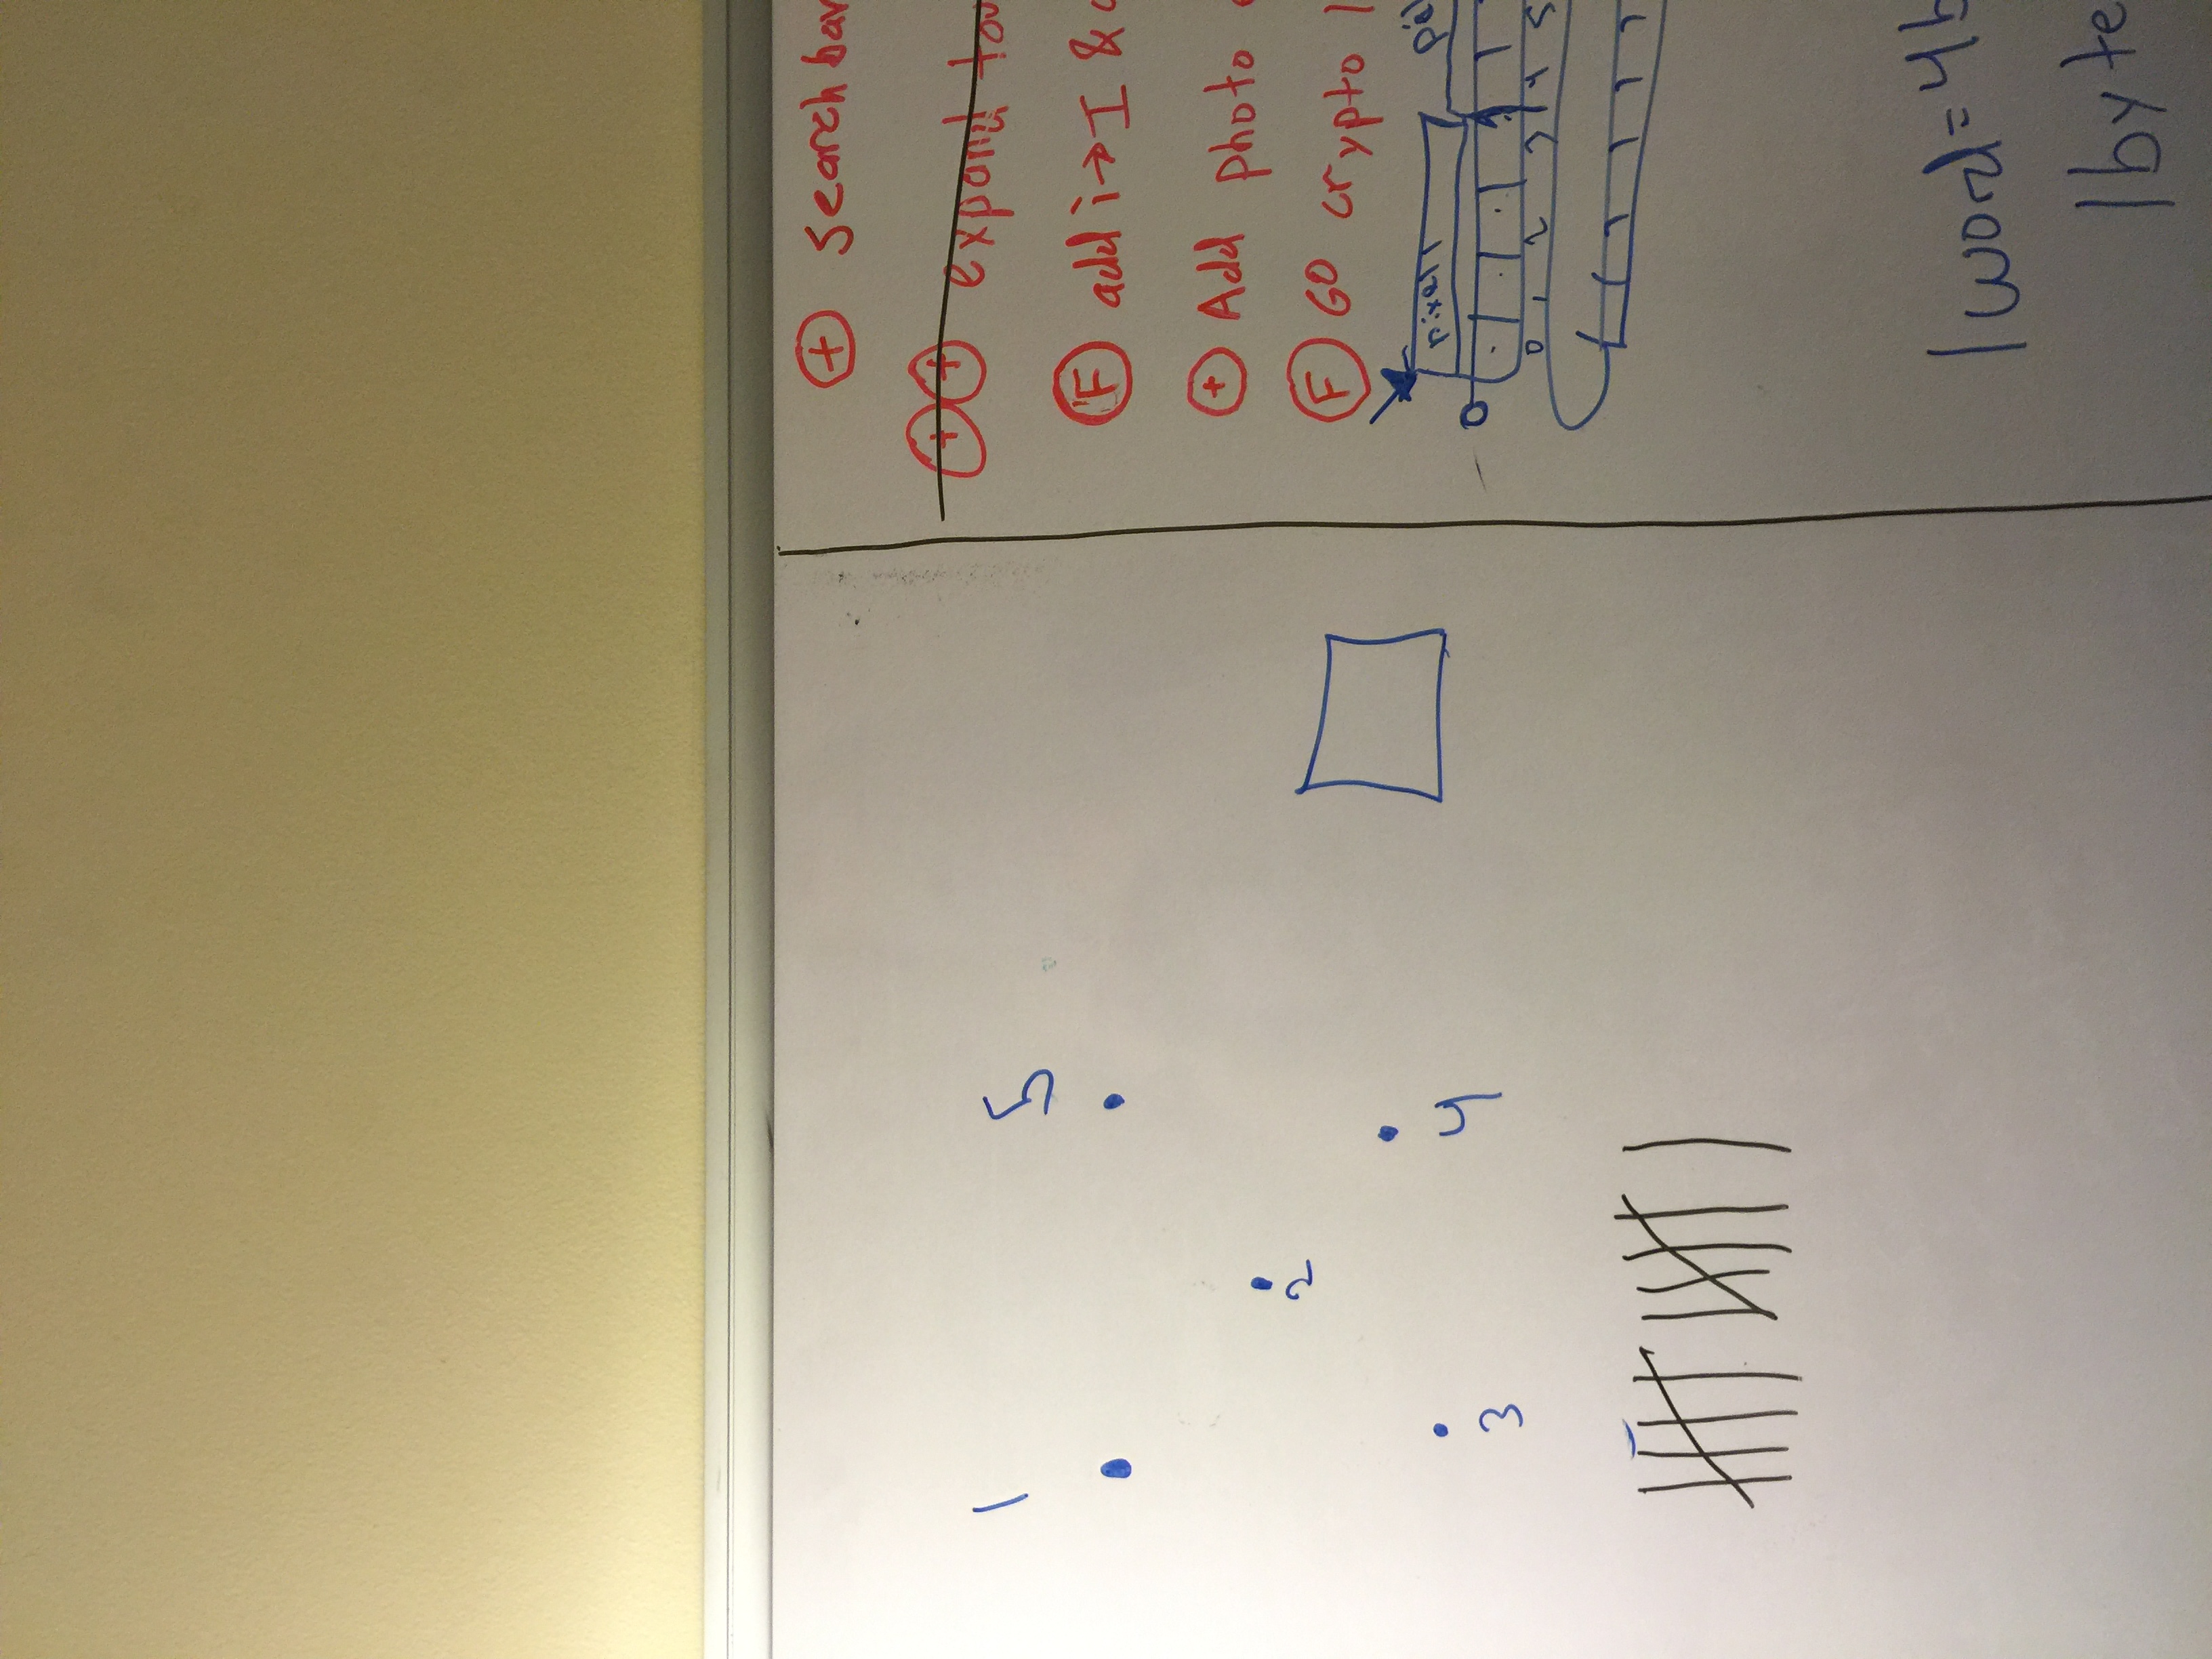 1
5
2
4
3
+ Search bar
+ + expand
F add i→I &
+ Add photo
F GO crypto
pixel 1
0
0 1 2 3 4 5
1 word = 4b
1 byte